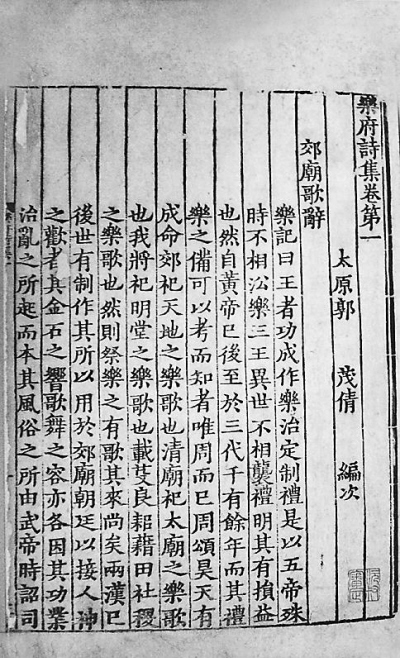 樂府詩集卷第一
太原郭茂倩編次
郊廟歌辭
樂記曰王者功成作樂治定制禮是以五帝殊
時不相㳂樂三王異世不相襲禮明其有損益
也然自黃帝已後至於三代千有餘年而其禮
樂之備可以考而知者唯周而已周頌昊天有
成命郊祀天地之樂歌也清廟祀太廟之樂歌
也我將祀明堂之樂歌也載芟良耜藉田社稷
之樂歌也然則祭樂之有歌其來尚矣兩漢已
後世有制作其所以用於郊廟朝廷以接人神
之歡者其金石之響歌舞之容亦各因其功業
治亂之所起而本其風俗之所由武帝時詔司